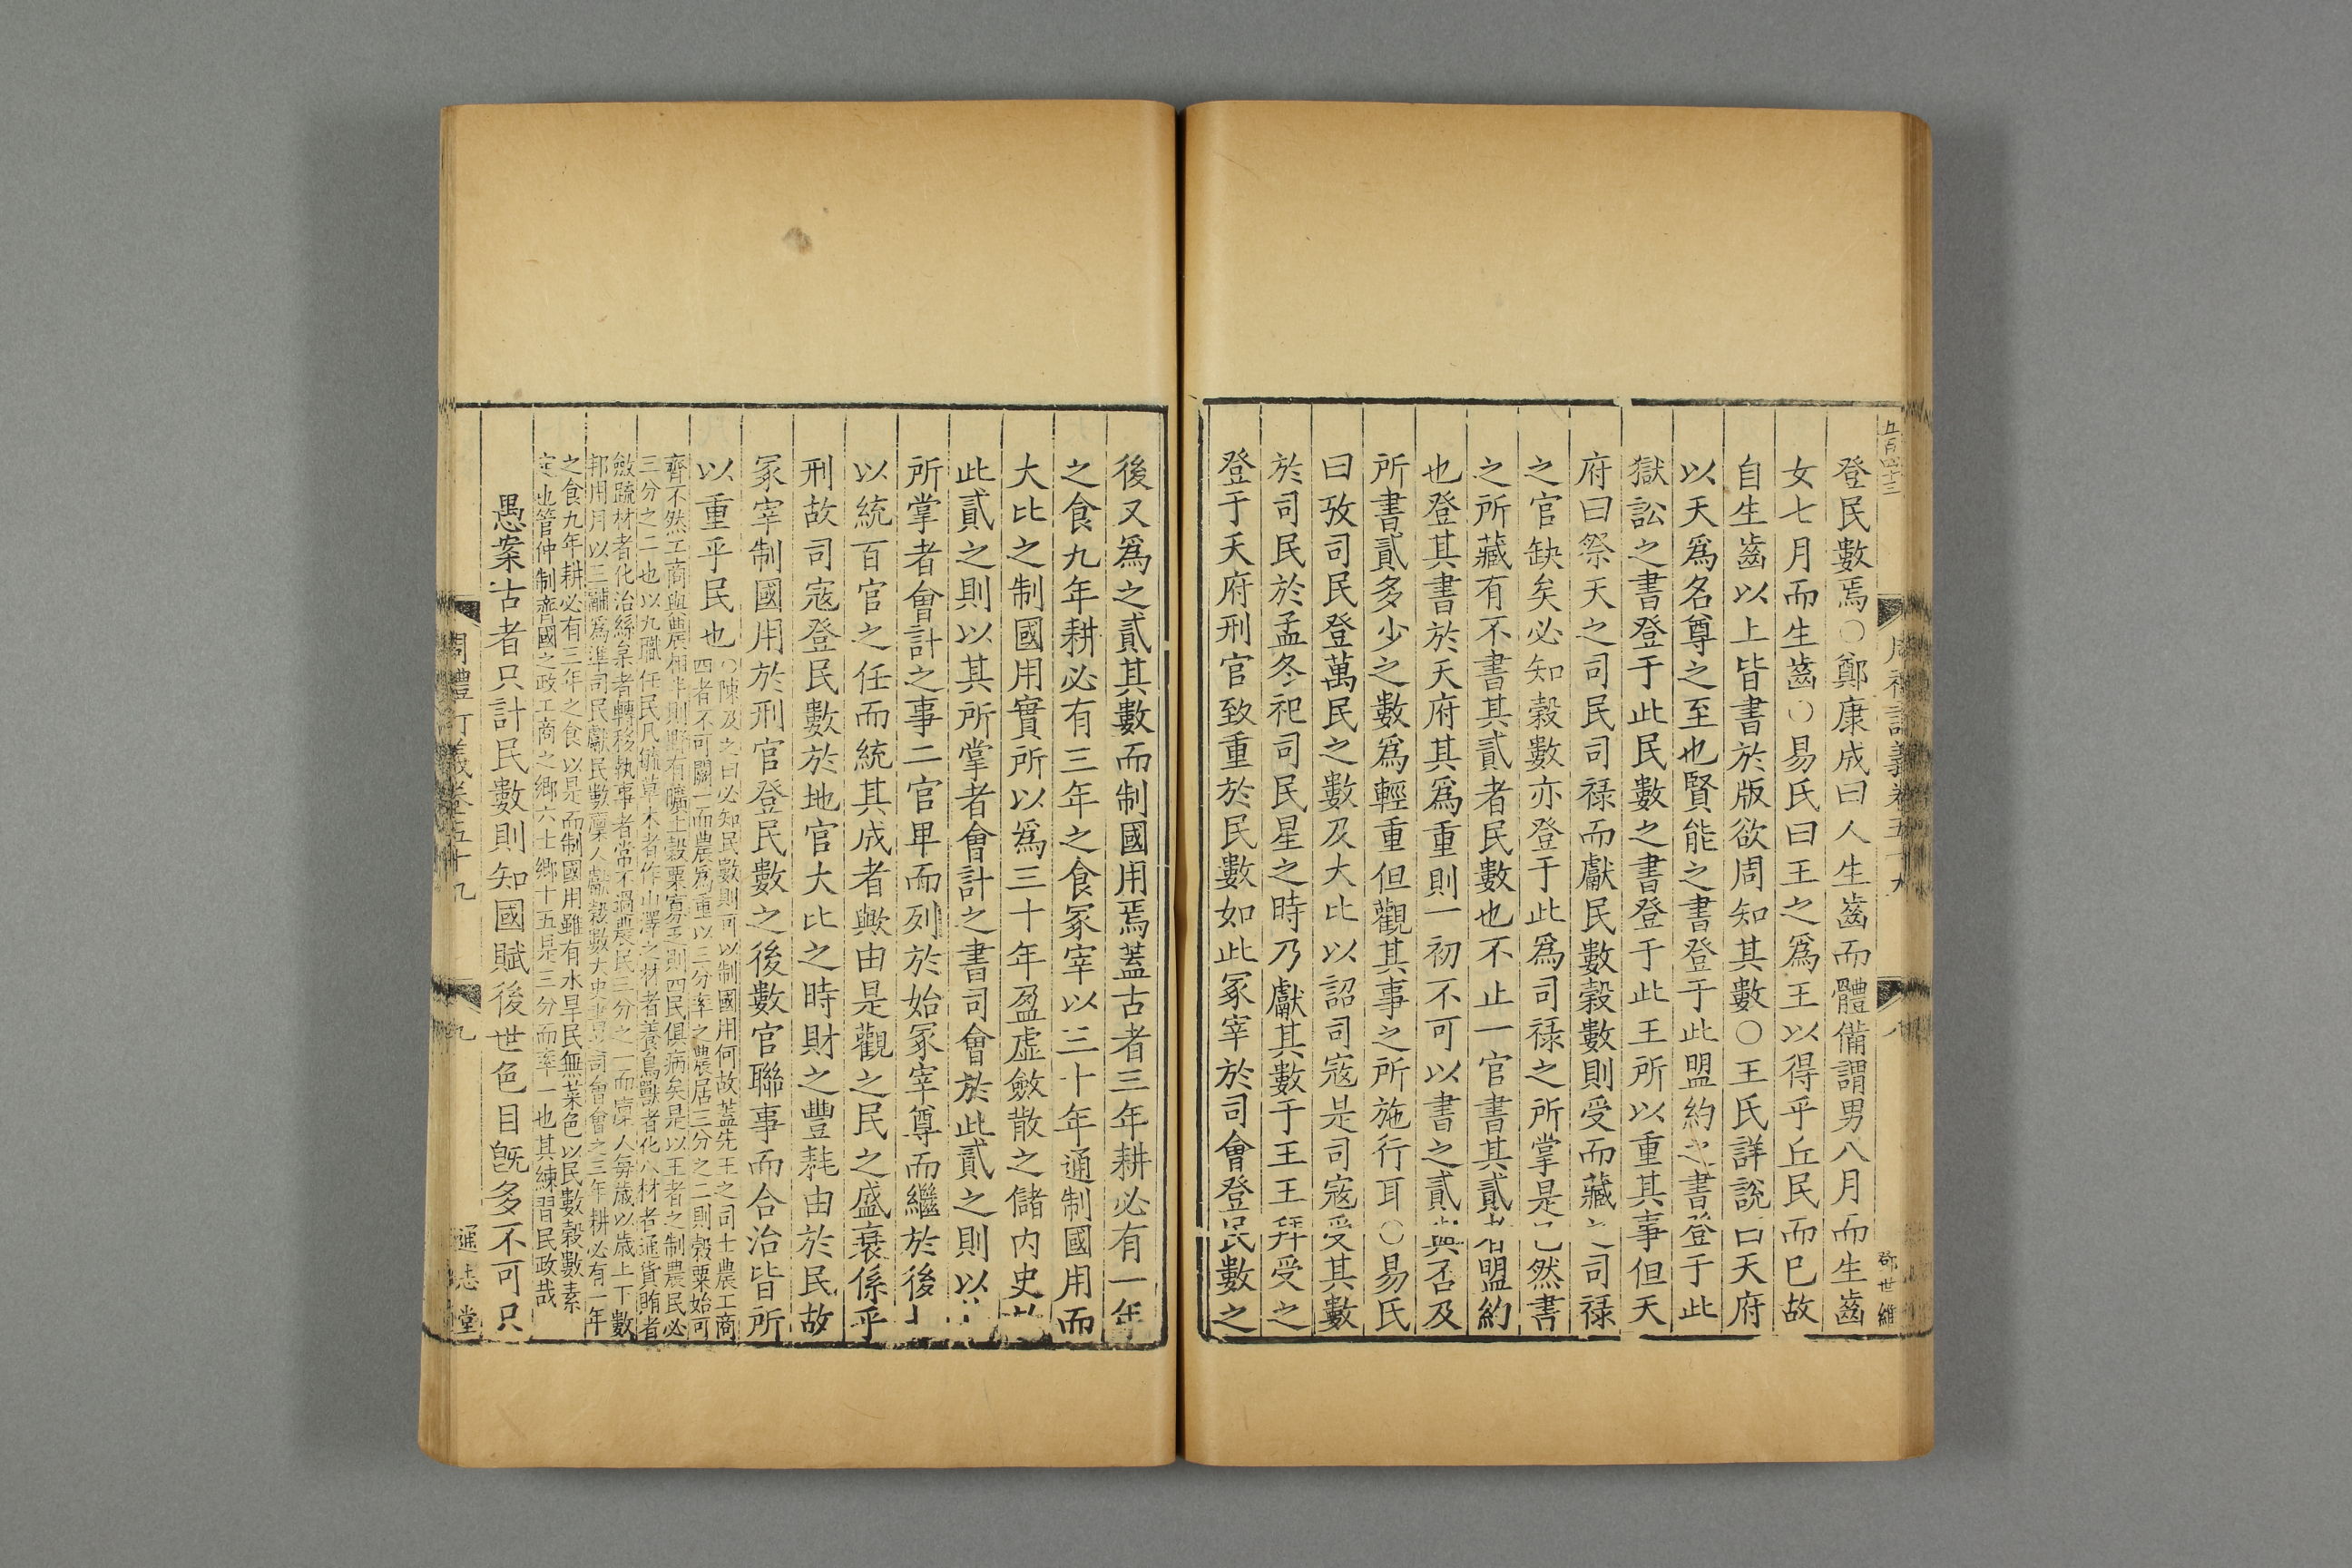 五百四十三
周禮訂義卷五十九
八
鄧世維
登民數焉○鄭康成曰人生齒而體備謂男八月而生齒
女七月而生齒○易氏曰王之爲王以得乎丘民而巳故
自生齒以上皆書於版欲周知其數○王氏詳說曰天府
以天爲名尊之至也賢能之書登于此盟約之書登于此
獄訟之書登于此民數之書登于此王所以重其事但天
府曰祭天之司民司祿而獻民數榖數則受而藏之司祿
之官缺矣必知榖數亦登于此爲司祿之所掌是已然書
之所藏有不書其貳者民數也不止一官書其貳者盟約
也登其書於天府其爲重則一初不可以書之貳與否及
所書貳多少之數爲輕重但觀其事之所施行耳○易氏
曰攷司民登萬民之數及大比以詔司寇是司寇受其數
於司民於孟冬祀司民星之時乃獻其數于王王拜受之
登于天府刑官致重於民數如此冢宰於司會登民數之
後又爲之貳其數而制國用焉蓋古者三年耕必有一年
之食九年耕必有三年之食冢宰以三十年通制國用而
大比之制國用實所以爲三十年盈虛斂散之儲内史
此貳之則以其所掌者會計之書司會於此貳之則以
所掌者會計之事二官畢而列於始冢宰尊而繼於後
以統百官之任而統其成者歟由是觀之民之盛衰係乎
刑故司寇登民數於地官大比之時財之豐耗由於民故
冢宰制國用於刑官登民數之後數官聯事而合治皆所
以重乎民也○陳及之曰必知民數則可以制國用何故蓋先王之司士農工商
四者不可闕一而農爲重以三分率之農居三分之二則榖粟始可
齊不然工商與農相半則野有曠土榖粟窮乏則四民俱病矣是以王者之制農民必
三分之二也以九職任民凡毓草木者作山澤之材者養鳥獸者化八材者通貨賄者
斂疏材者化治絲枲者轉移執事者常不過農民三分之一而廩人每歲以歲上下數
邦用月以三鬴爲準司民獻民數廩人獻榖數大史書之司會會之三年耕必有一年
之食九年耕必有三年之食以是而制國用雖有水旱民無菜色以民數榖數素
定也管仲制齊國之政工商之鄉六士鄉十五是三分而率一也其練習民政哉
愚案古者只計民數則知國賦後世色目旣多不可只
周禮訂義卷五十九
九
通志堂